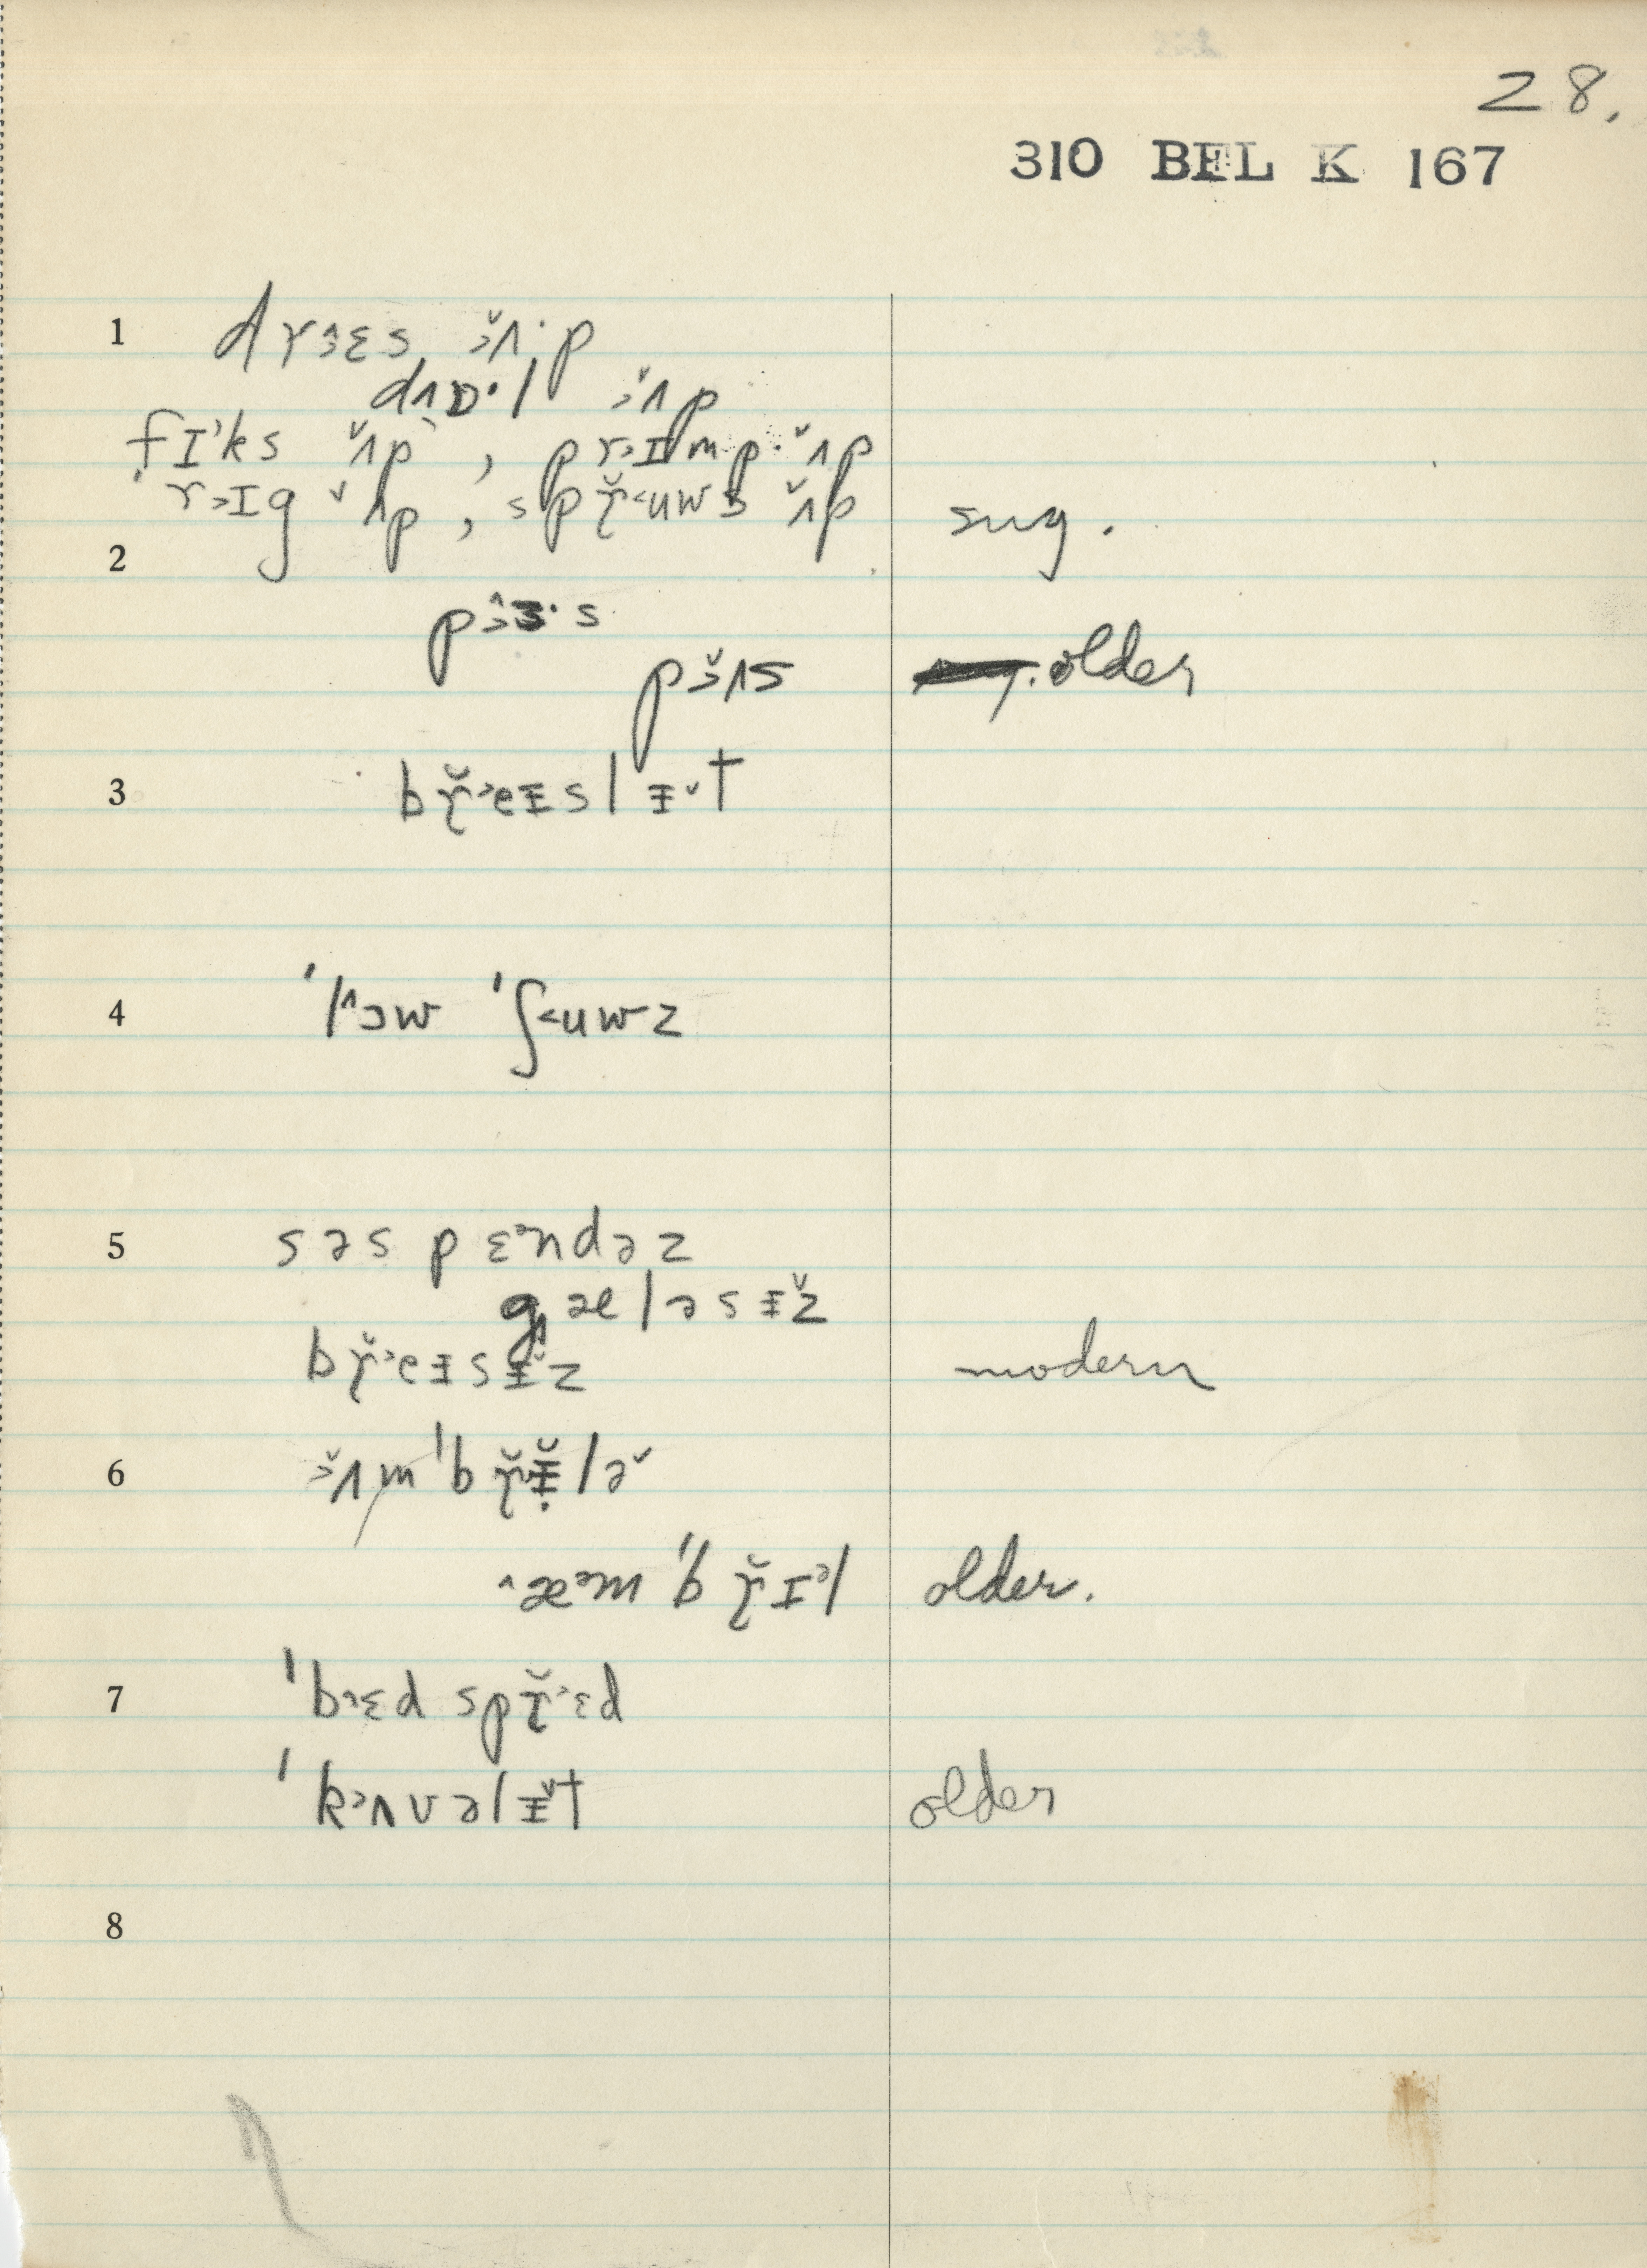 28.
310 BEL K 167
1 drɛs ʌp
dɒl ʌp
fɪks ʌp, prɪmp ʌp
rɪg ʌp, spruws ʌp sug.
2 pɜ·s
pʌs older
3 breɪslɪt
4 'lɔw 'ʃuwz
5 səspɛndəz
gæləsɪz
breɪsɪz modern
6 ʌm'brɪlə
æm'brɪl older.
7 'bɛd sprɛd
'kʌvəlɪt older
8